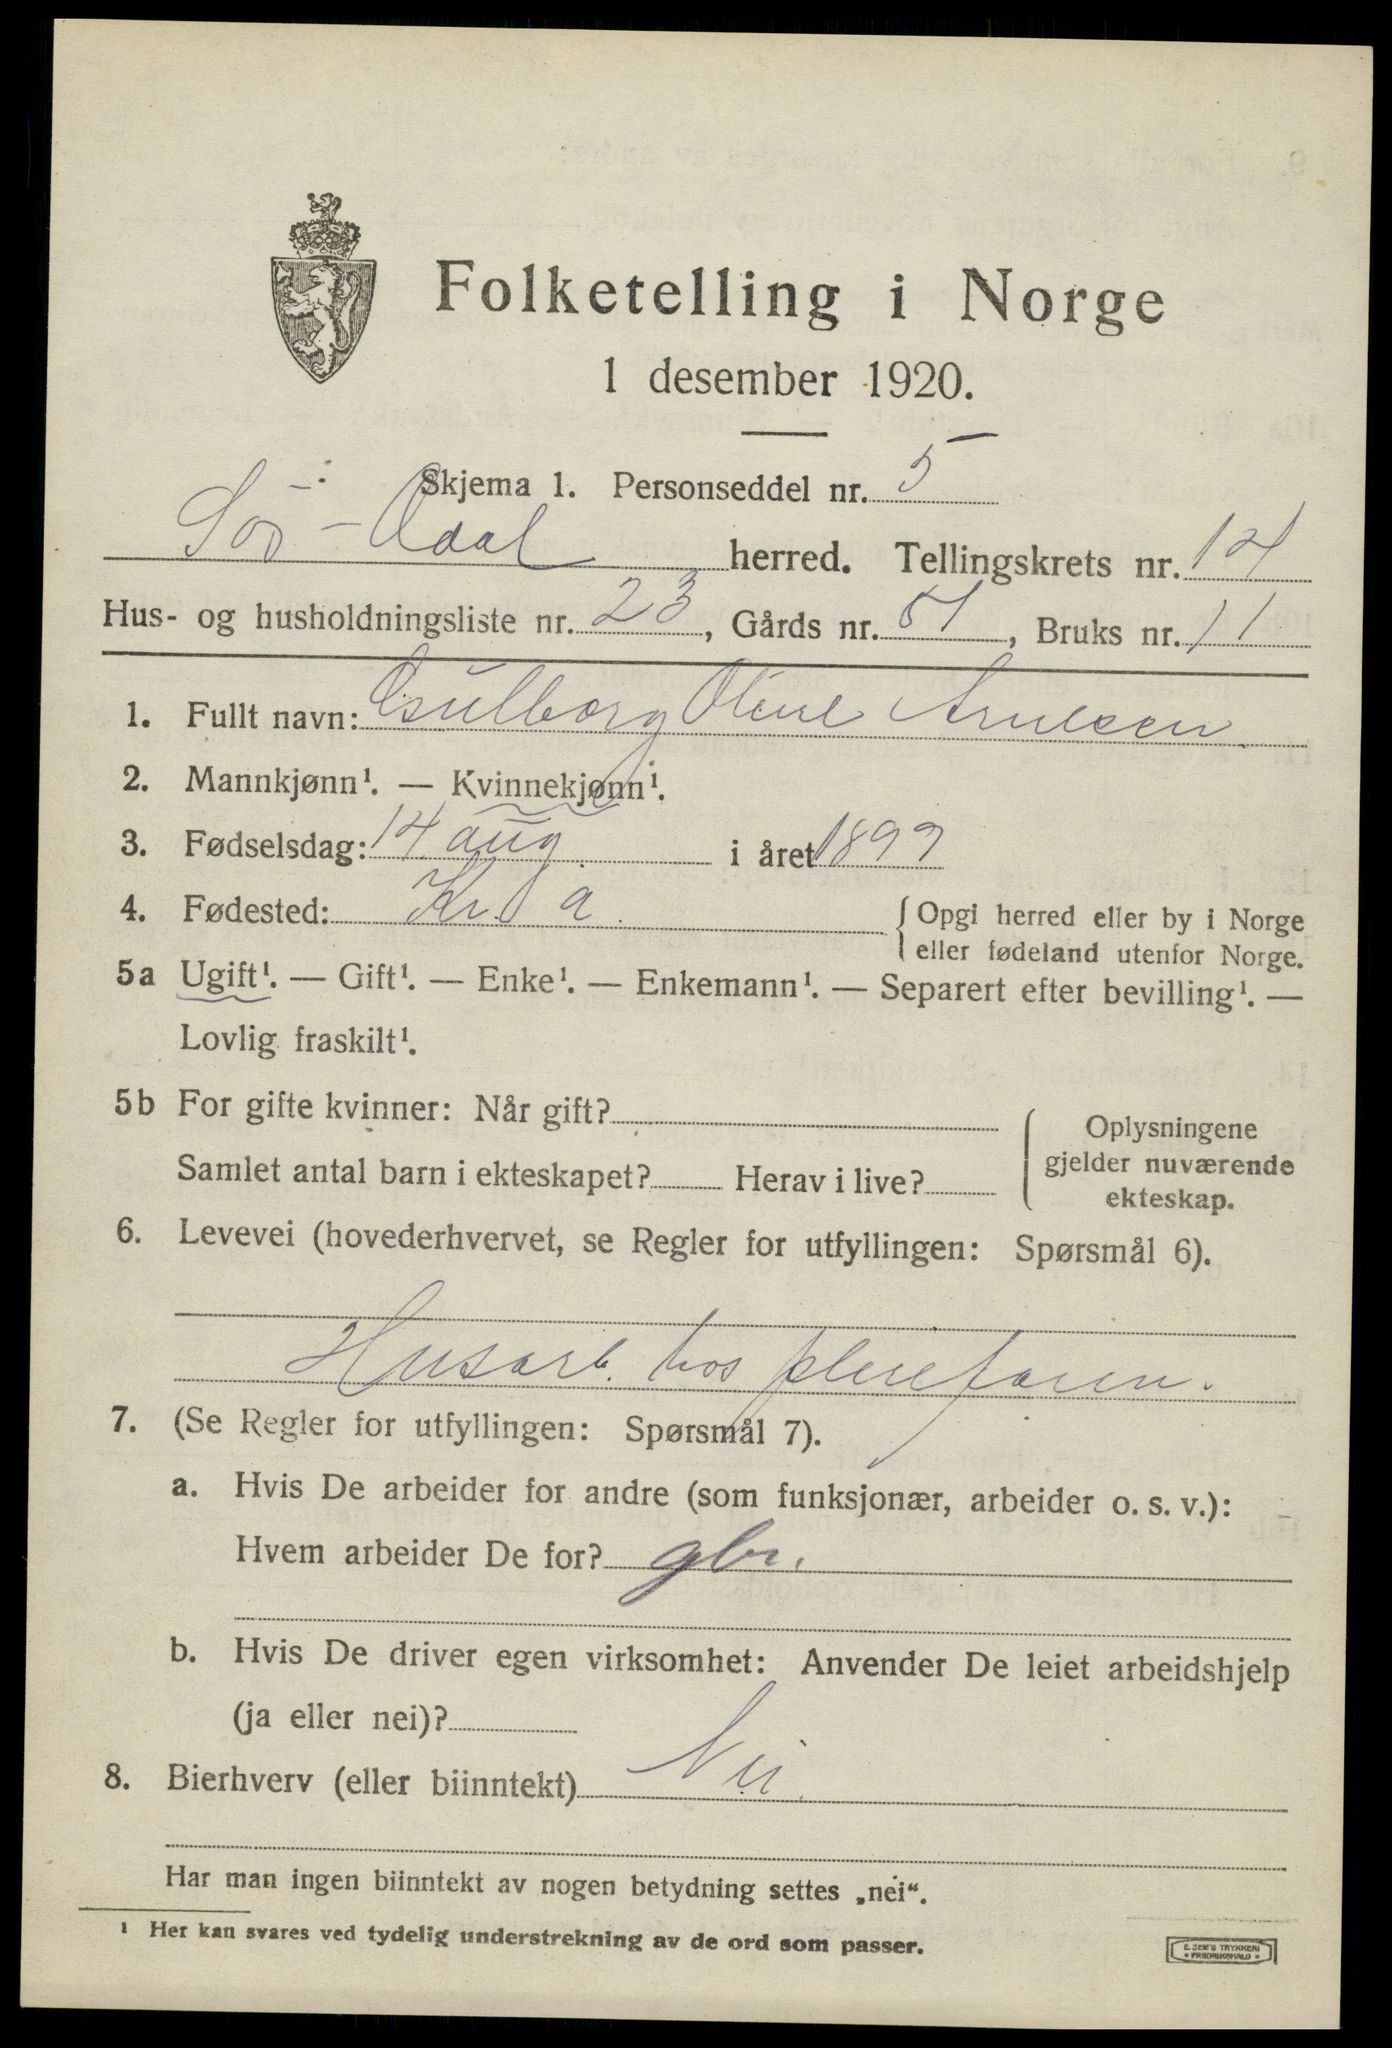 Folketelling i Norge
1 desember 1920.
Skjema 1. Personseddel nr. 5
Sør-Odal herred. Tellingskrets nr. 14
Hus- og husholdningsliste nr. 23, Gårds nr. 51, Bruks nr. 11
1. Fullt navn: Gulborg Oline Arnesen
2. Mannkjønn¹. — Kvinnekjønn¹.
3. Fødselsdag: 14 aug. i året 1899
4. Fødested: Kr.a. { Opgi herred eller by i Norge
eller fødeland utenfor Norge.
5a Ugift¹. — Gift¹. — Enke¹. — Enkemann¹. — Separert efter bevilling¹. —
Lovlig fraskilt¹.
5b For gifte kvinner: Når gift?
Samlet antal barn i ekteskapet? Herav i live?
Oplysningene
gjelder nuværende
ekteskap.
6. Levevei (hovederhvervet, se Regler for utfyllingen: Spørsmål 6).
Husarb. hos pleiefaren.
7. (Se Regler for utfyllingen: Spørsmål 7).
a. Hvis De arbeider for andre (som funksjonær, arbeider o. s. v.):
Hvem arbeider De for? gbr.
b. Hvis De driver egen virksomhet: Anvender De leiet arbeidshjelp
(ja eller nei)?
8. Bierhverv (eller biinntekt) Nei
Har man ingen biinntekt av nogen betydning settes „nei“.
¹ Her kan svares ved tydelig understrekning av de ord som passer.
E. SEM'S TRYKKERI
FREDRIKSHALD